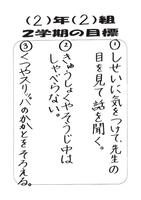 (2)年(2)組
2学期の目標
①しせいに気をつけて、先生の
目を見て話を聞く。
②きゅうしょくやそうじ中は
しゃべらない。
③くつやスリッパのかかとをそろえる。